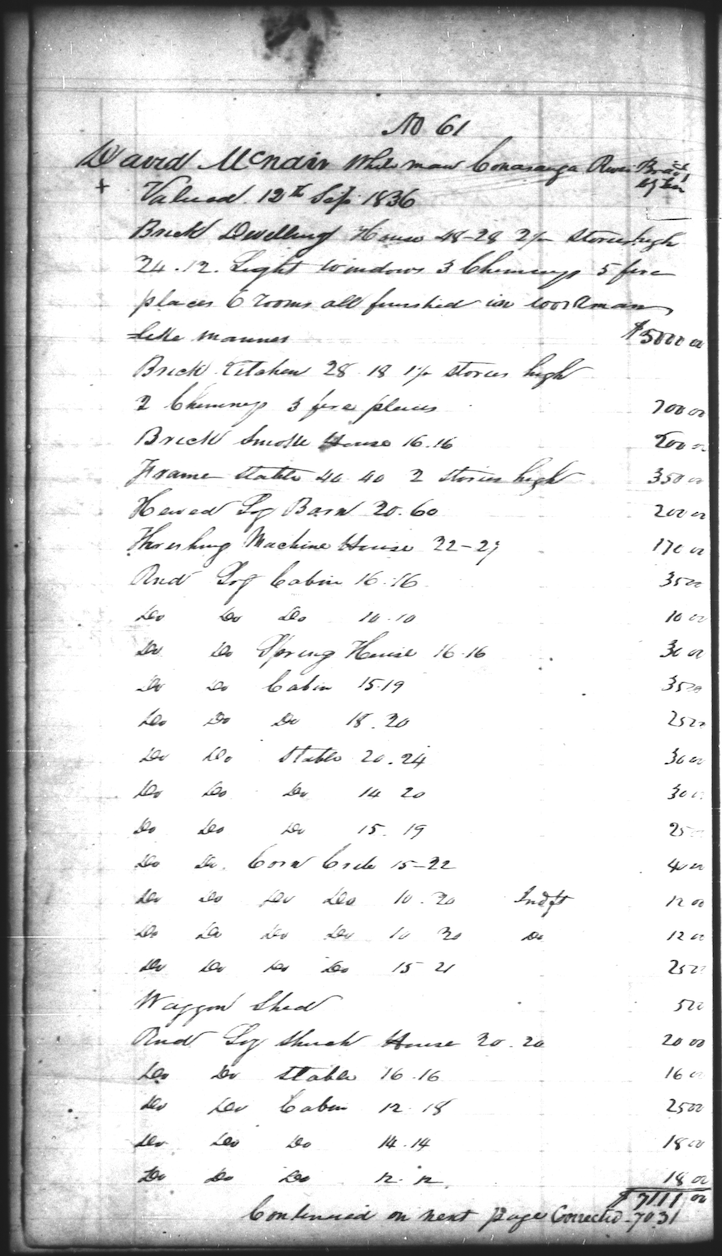 No 61
David McNair White man Conasauga River
+ Valued 12th Sep 1836
Brick Dwelling House 48-28 2½ stories high
24.12. Light windows 3 Chimneys 5 fire
places 6 rooms all finished in workman
like manner $5000 00
Brick Kitchen 28 18 1½ stories high
2 Chimneys 3 fire places 700 00
Brick Smoke House 16.16 200 00
Frame stable 40 40 2 stories high 350 00
Hewed Log Barn 20.60 200 00
Threshing Machine House 22-27 170 00
Rnd Log Cabin 16.16 35 00
Do Do Do 10.10 10 00
Do Do Spring House 16.16 30 00
Do Do Cabin 15.19 35 00
Do Do Do 18.20 25 00
Do Do Stable 20.24 30 00
Do Do Do 14 20 30 00
Do Do Do 15.19 25
Do Do Corn Crib 15-22 40 00
Do Do Do Do 10.20 Indft 12 00
Do Do Do Do 10 20 Do 12 00
Do Do Do Do 15 21 25 00
Waggon Shed 5 00
Rnd Log Shuck House 20.20 20 00
Do Do Stable 16.16 16 00
Do Do Cabin 12.18 25 00
Do Do Do 14.14 18 00
Do Do Do 12.12 18 00
$7111 00
Continued on next page Corrected 7031